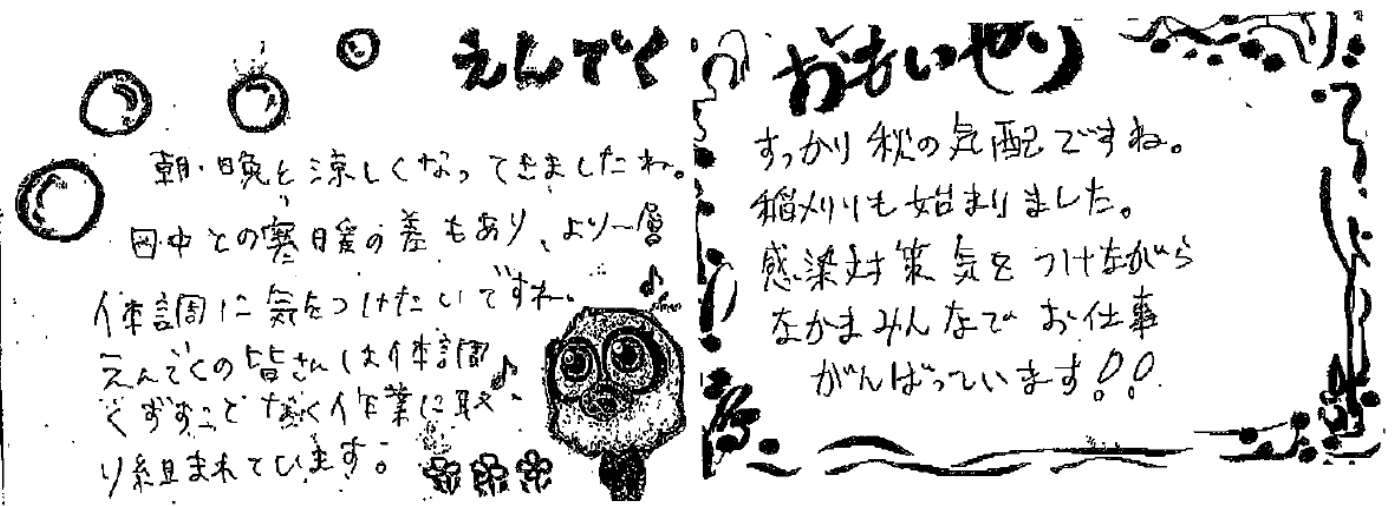 えんでく
朝・晩と涼しくなってきましたね。
日中との寒暖の差もあり、より一層
体調に気をつけたいですね。
えんでくの皆さんは体調
くずすことなく作業に取
り組まれています。
おもいやり
すっかり秋の気配ですね。
稲刈りも始まりました。
感染対策気をつけながら
なかまみんなで お仕事
がんばっています!!